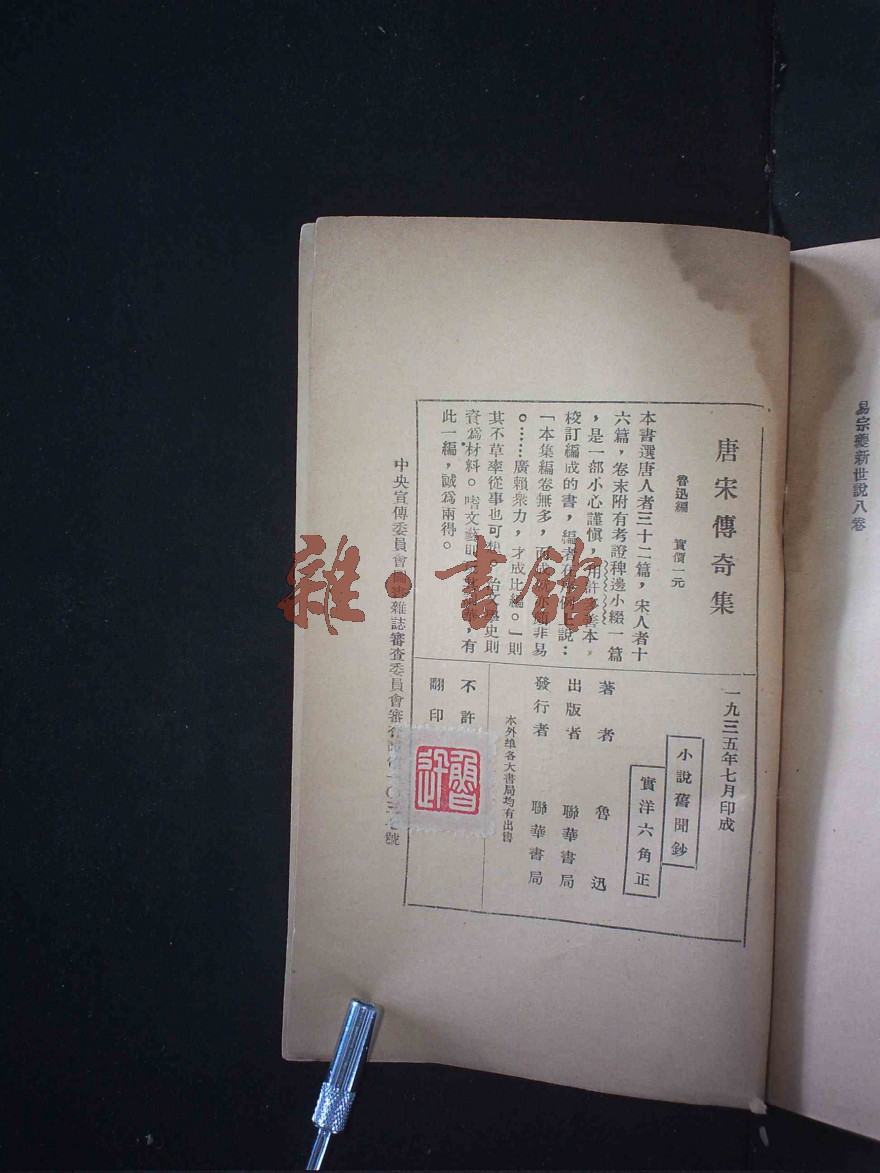 易宗夔新世說八卷
唐宋傳奇集
魯迅編 實價一元
本書選唐人者三十二篇，宋人者十
六篇，卷末附有考證稗邊小綴一篇
，是一部小心謹愼，用許
校訂編成的書，編者
「本集編卷無多，而
。……廣賴衆力，才成比編。」則
其不草率從事也可
資爲材料。嗜文藝
此一編，誠爲兩得。
一九三五年七月印成
小說舊聞鈔
實洋六角正
著者 魯迅
出版者 聯華書局
發行者 聯華書局
本外埠各大書局均有出售
不許
翻印
魯迅
中央宣傳委員會圖書雜誌審查委員會審查
雜·書館